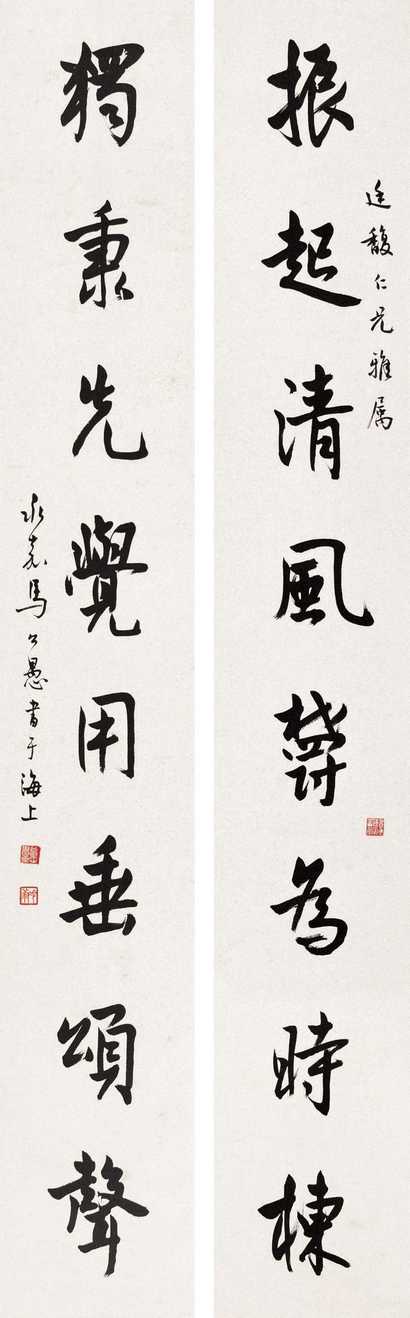 振起清風鬱為時棟
獨秉先覺用垂頌聲
馥仁兄雅属
永嘉馬公愚書于海上